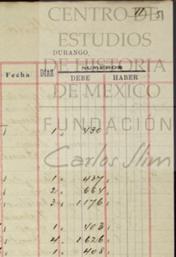 CENTRO DE
ESTUDIOS
DE HISTORIA
DE MEXICO
FUNDACIÓN
Carlos Slim
DURANGO,
Fecha DÍAS NUMEROS
DEBE HABER
1. 430.
1. 437.
2. 664.
3. 1176.
1. 403.
4. 1626.
1. 408.